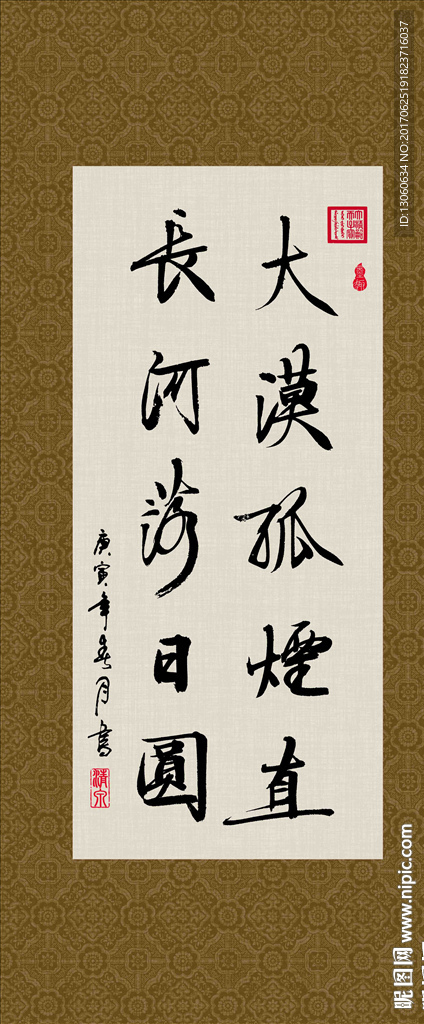 大漠孤煙直
長河落日圓
庚寅年春月書
清泉
ID:13060634 NO:20170625191823716037
昵图网 www.nipic.com